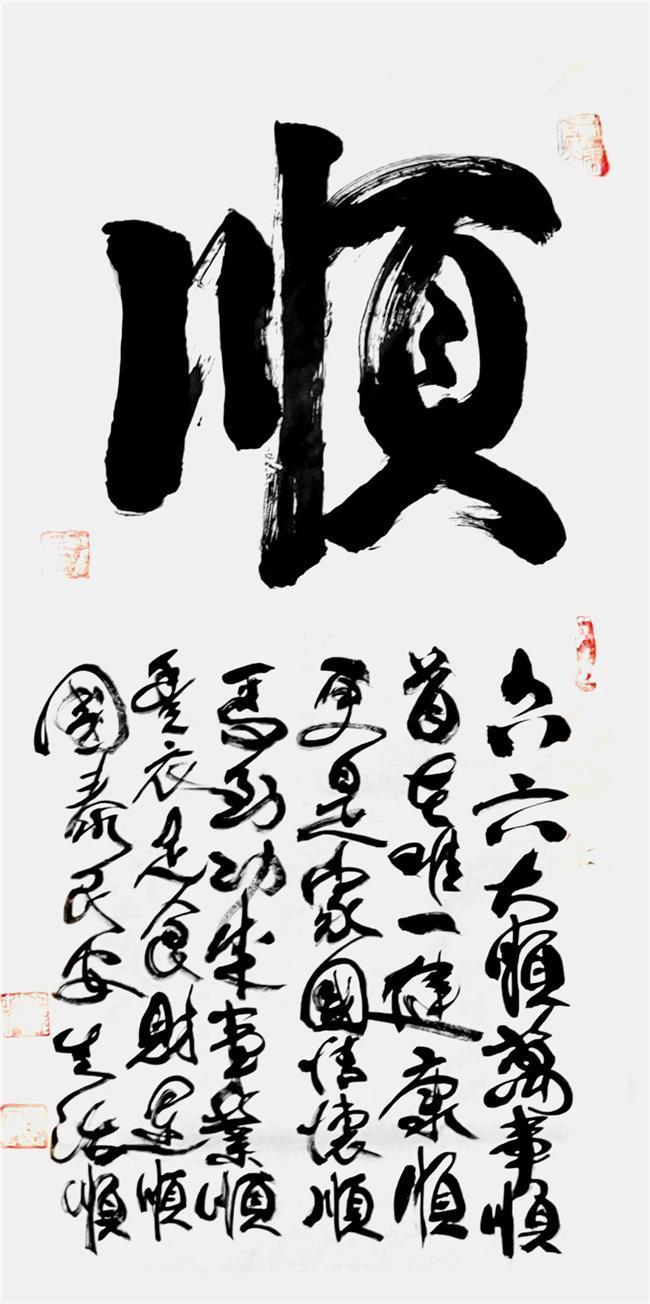 順
六六大順萬事順
首在唯一健康順
更是家國情懷順
馬到功成事業順
豐衣足食財運順
國泰民安生活順